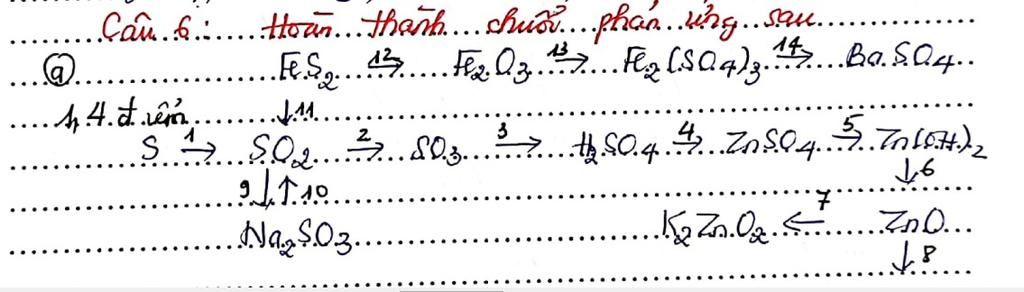 Câu 6: Hoàn thành chuỗi phản ứng sau
ⓐ FeS2 12→ Fe2O3 13→ Fe2(SO4)3 14→ BaSO4
1,4 điểm ↓11
S 1→ SO2 2→ SO3 3→ H2SO4 4→ ZnSO4 5→ Zn(OH)2
9↓↑10 ↓6
Na2SO3 K2ZnO2 ←7 ZnO
↓8